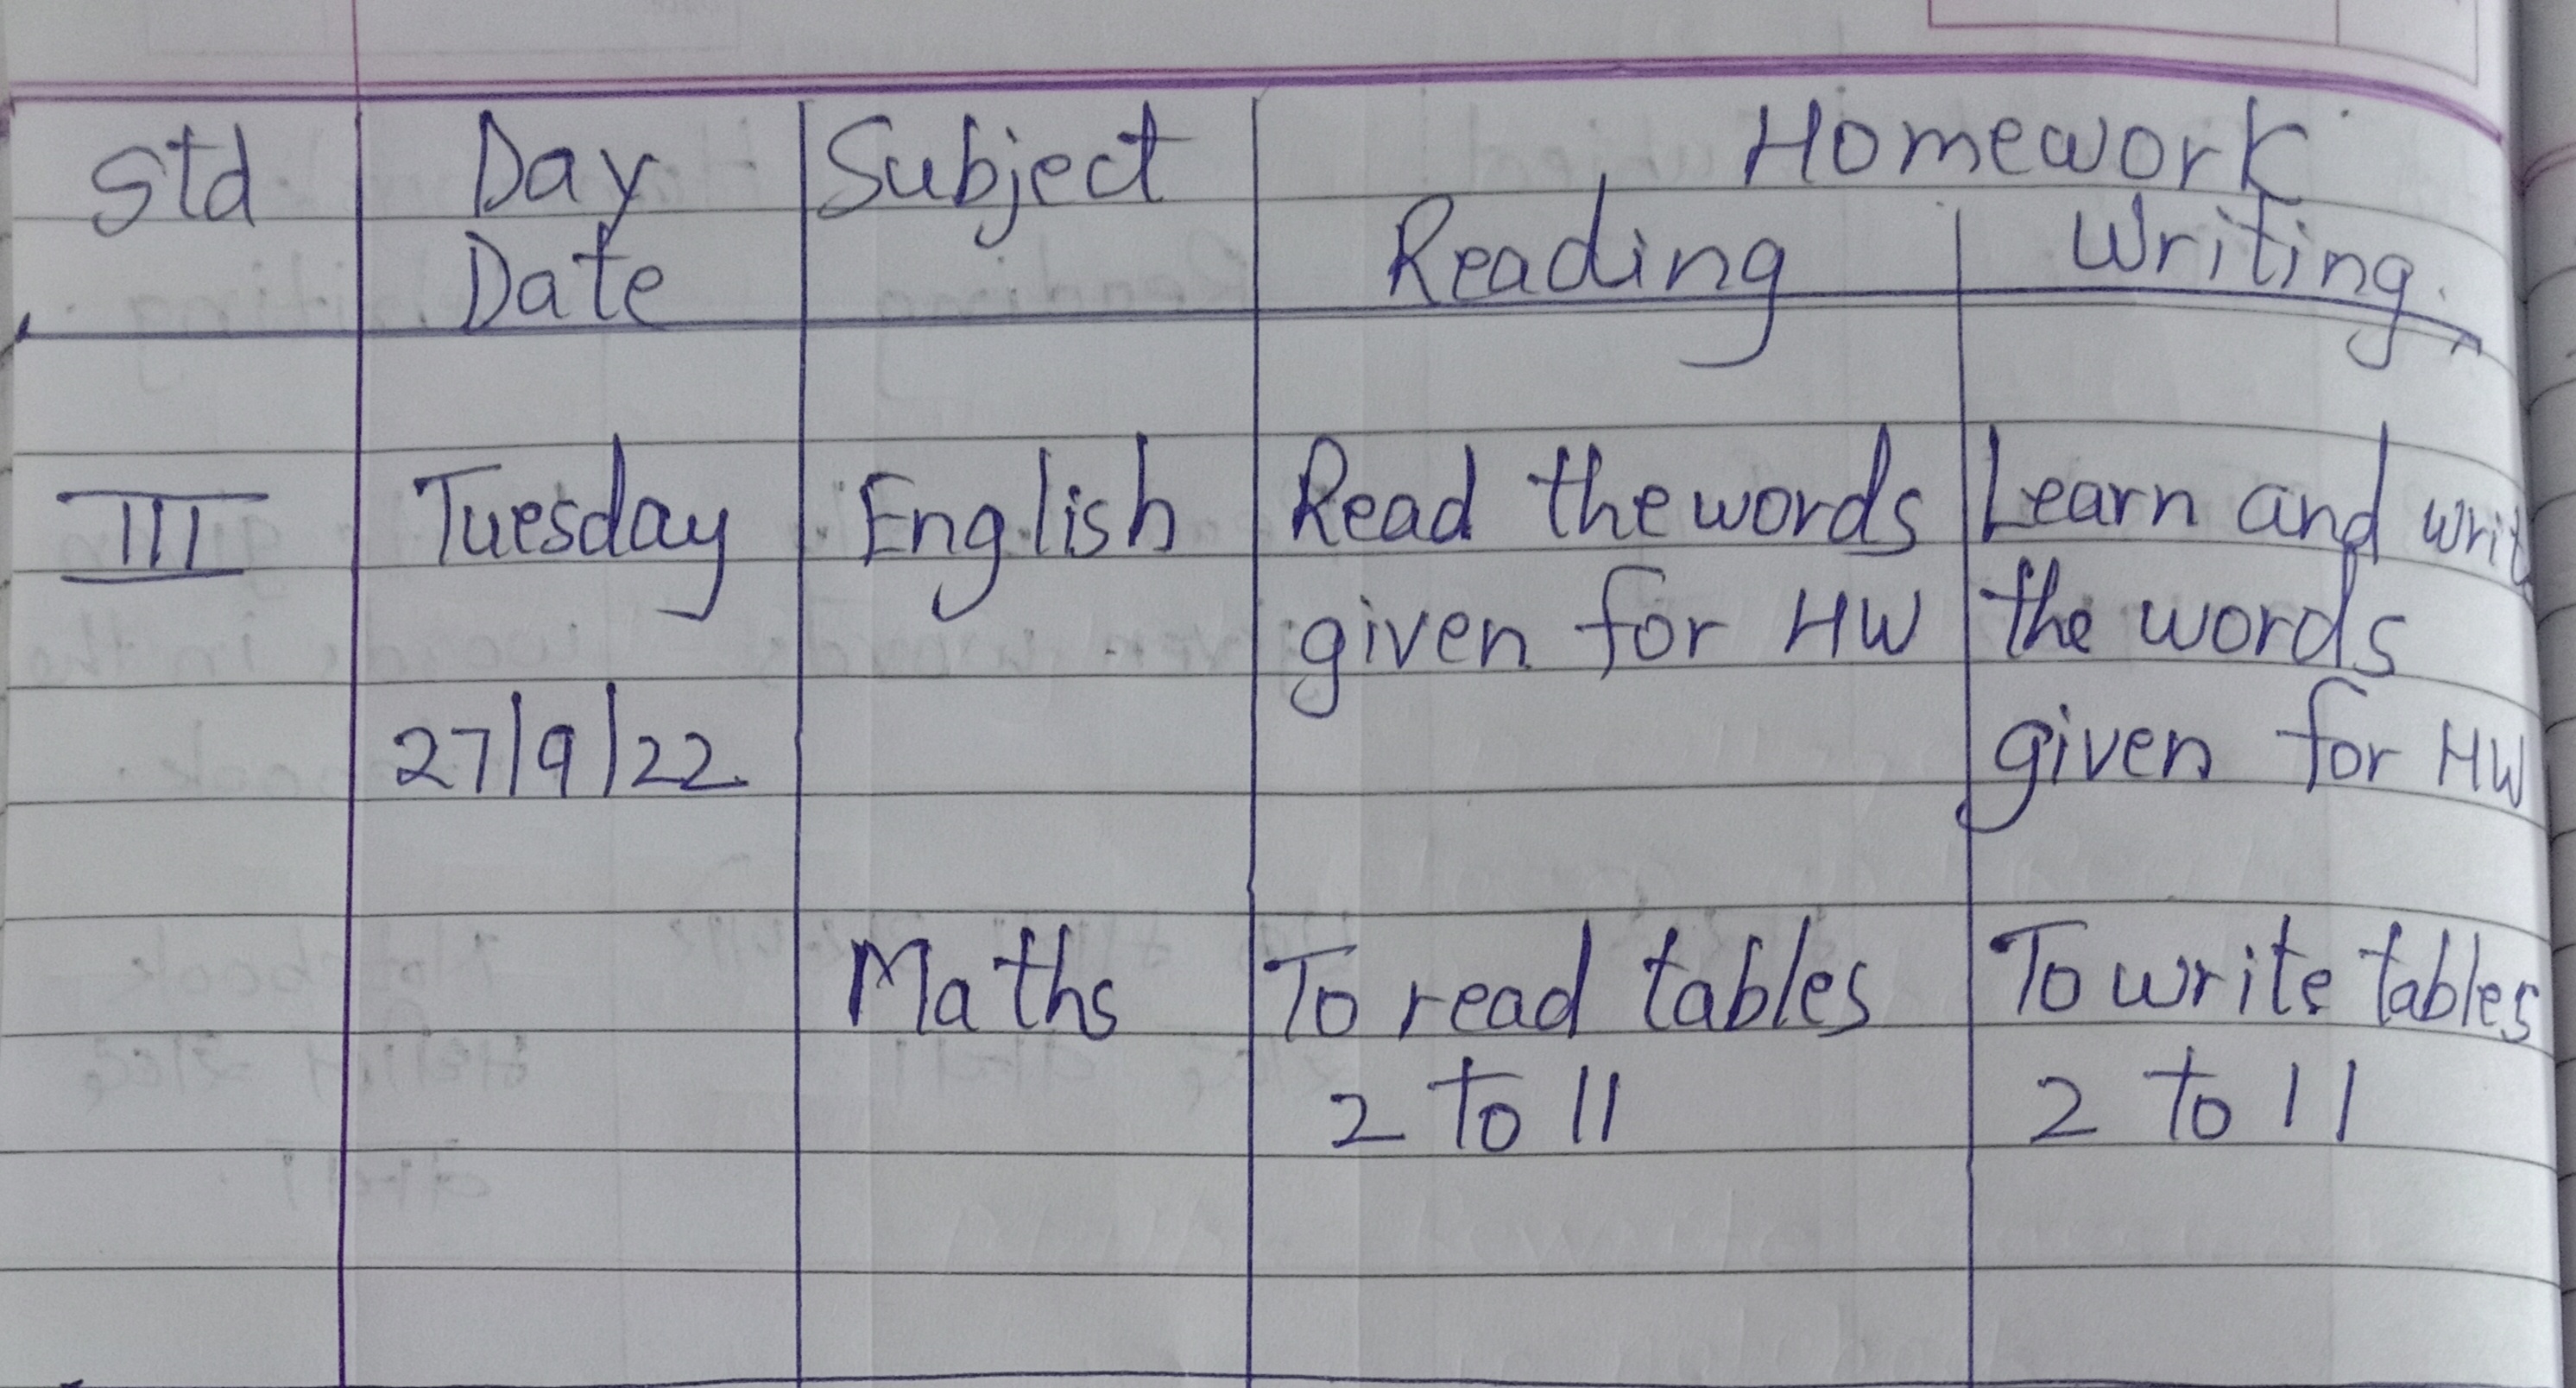 Std Day Subject Homework
Date Reading Writing.
III Tuesday English Read the words Learn and writ
given for HW the words
27/9/22 given for HW
Maths To read tables To write tables
2 To 11 2 To 11